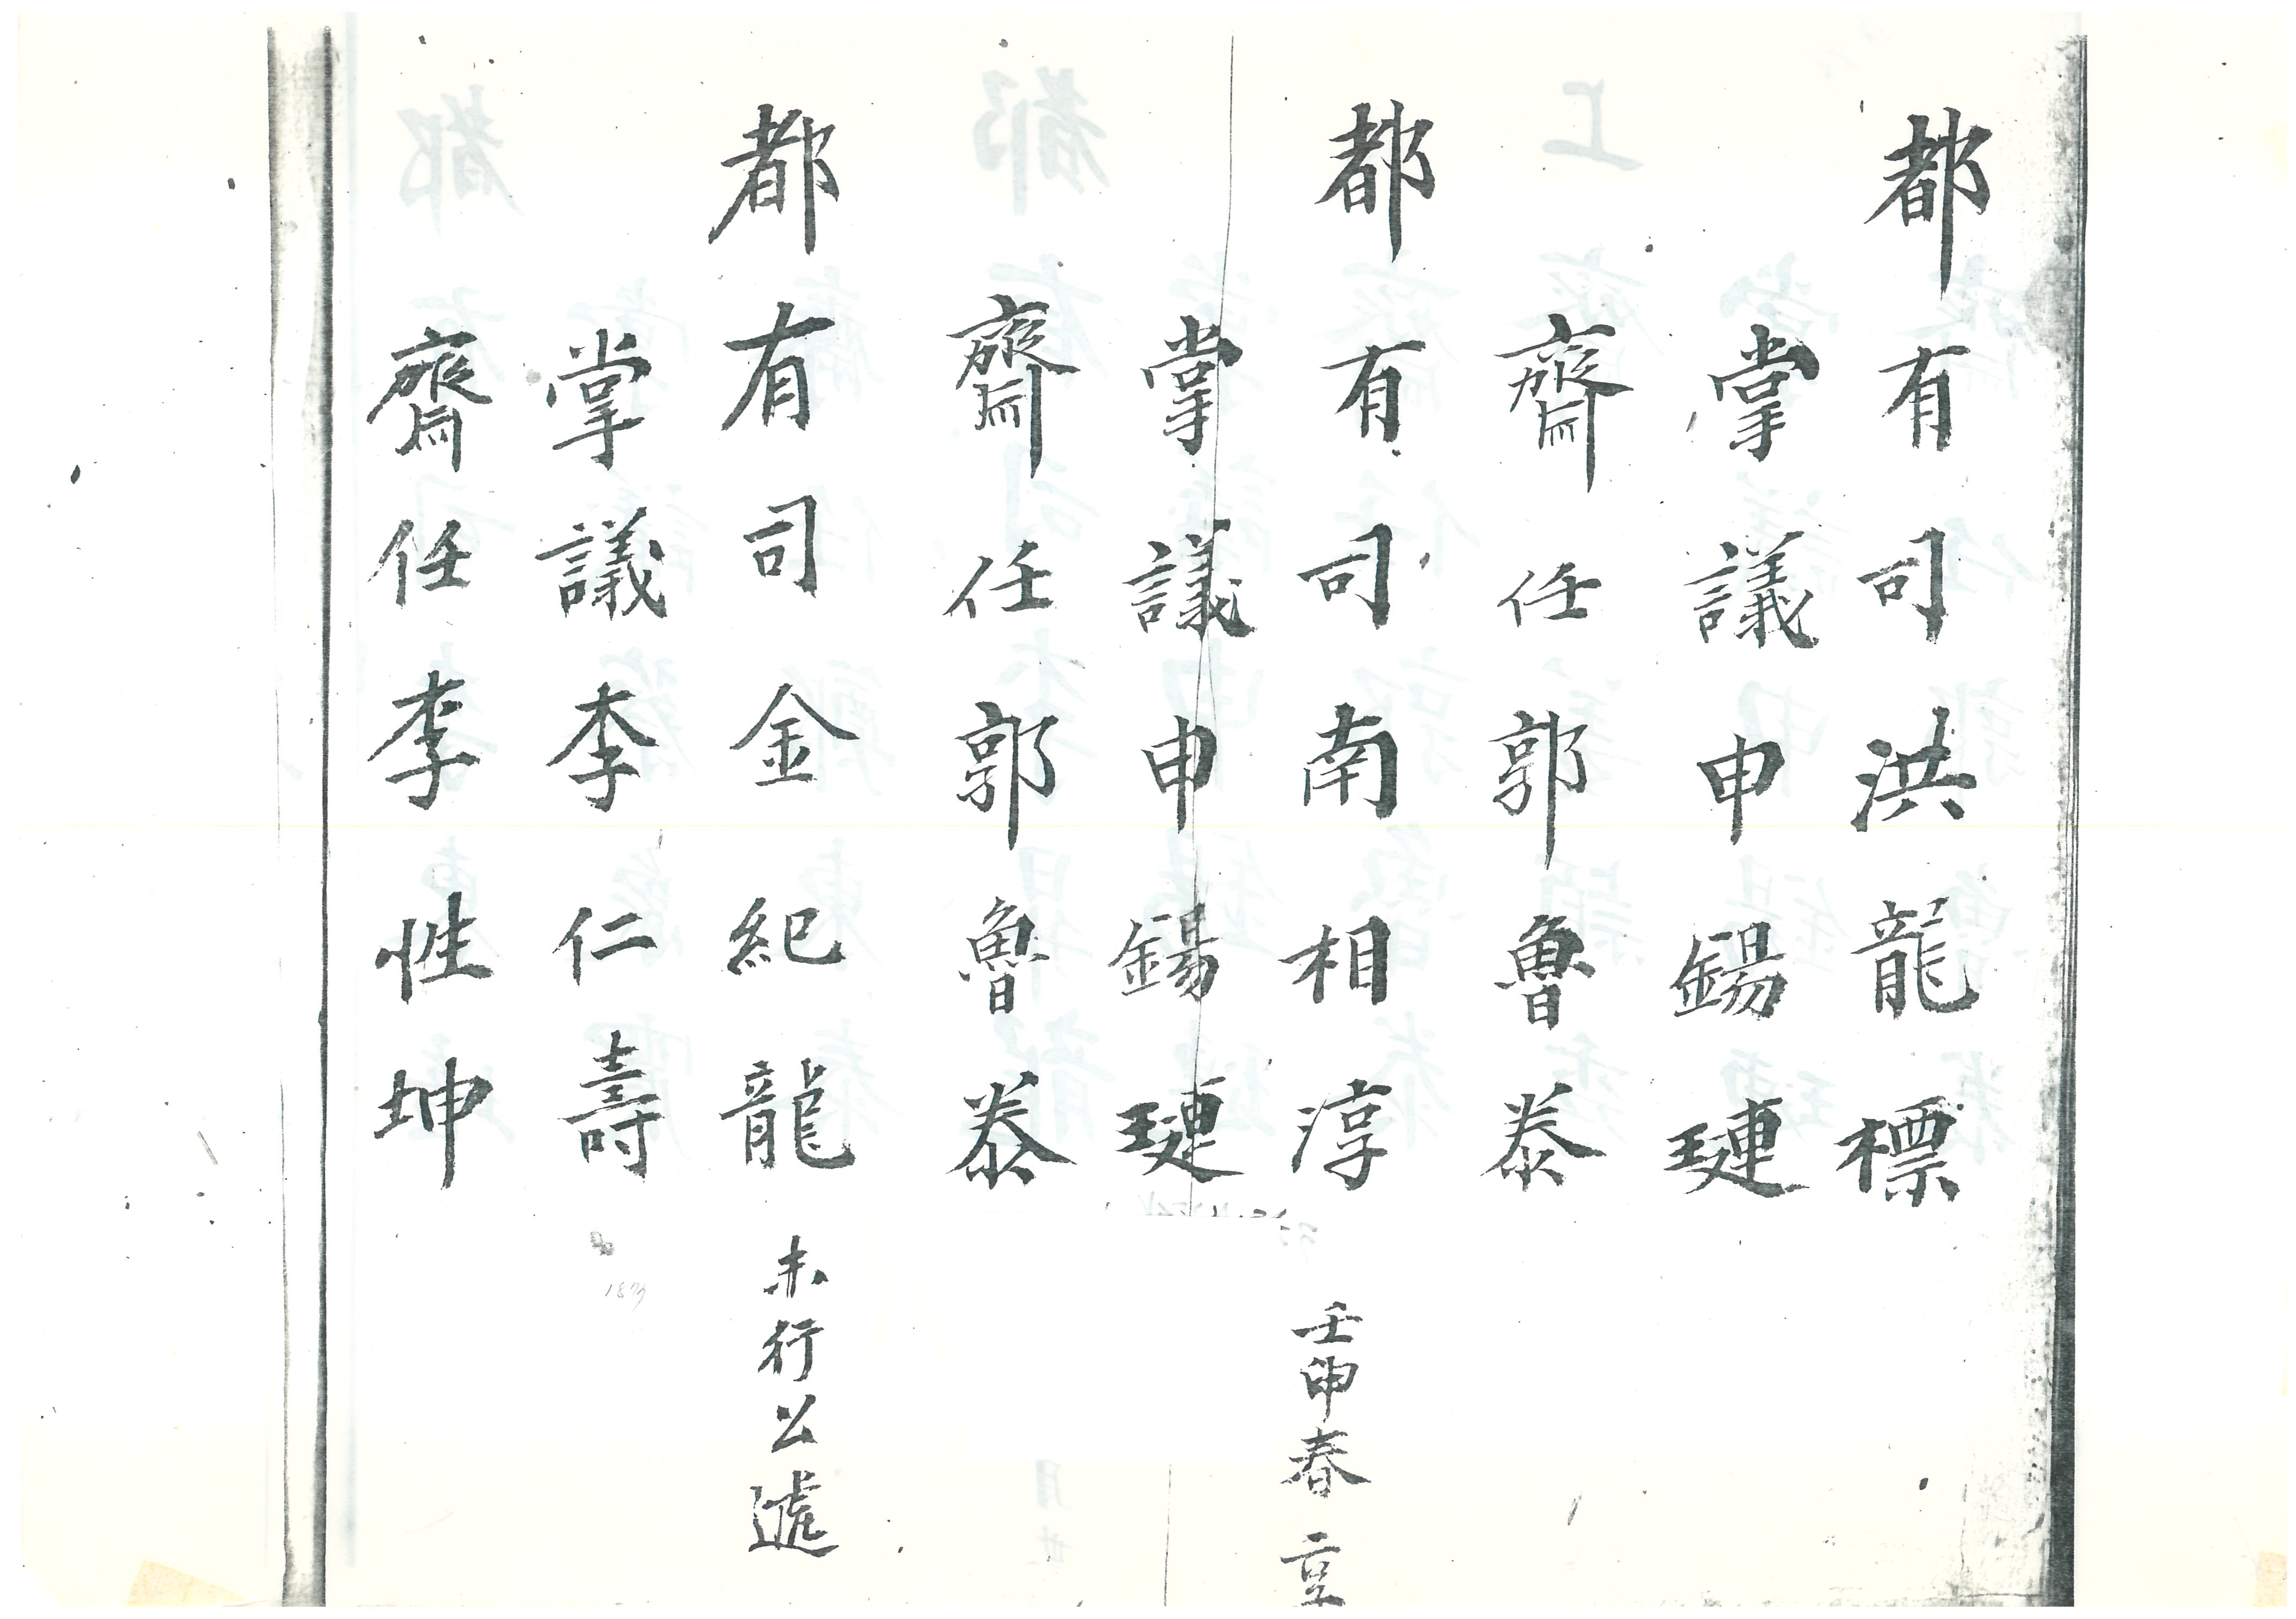 都有司洪龍標
掌議申錫璉
齋任郭魯泰
都有司南相淳 壬申春
掌議申錫璉
齋任郭魯泰
都有司金紀龍 未行公遞
掌議李仁壽
齋任李性坤